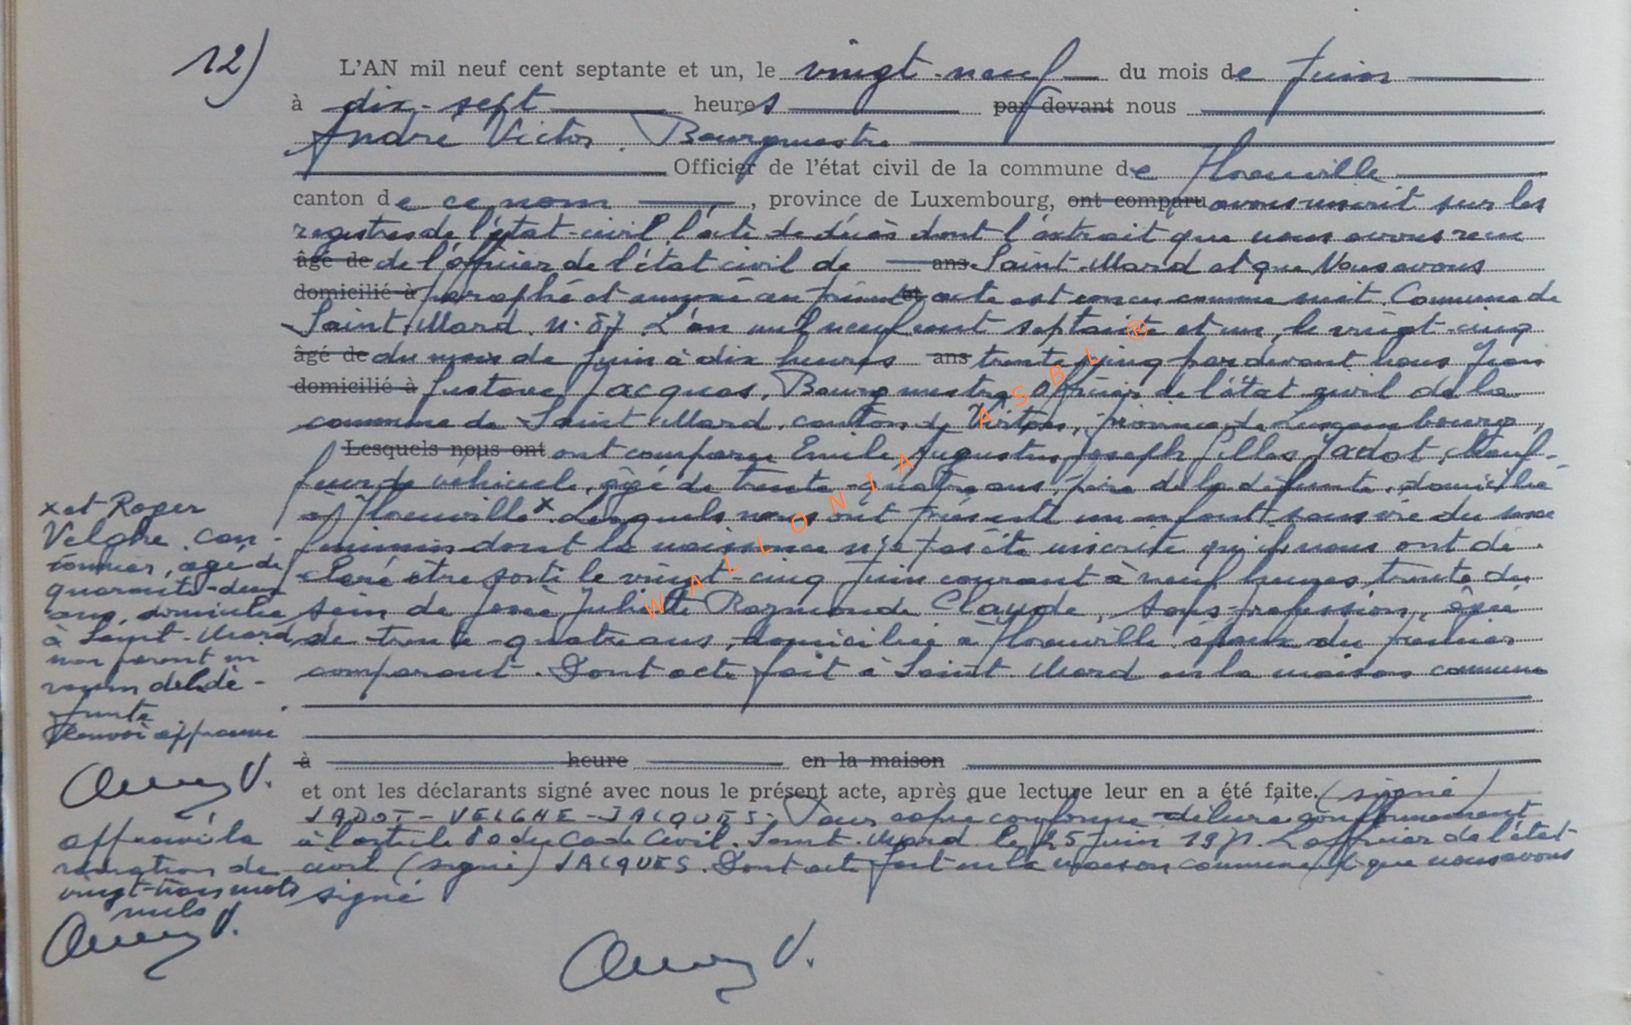 12)
L'AN mil neuf cent septante et un, le vingt-neuf du mois de Juin
à dix-sept heures par devant nous
André Victor, Bourgmestre
Officier de l'état civil de la commune de Florenville
canton de ce nom, province de Luxembourg, ont comparu avons inscrit sur les
registres de l'état-civil l'acte de décès dont l'extrait que nous avons reçu
âgé de de l'officier de l'état civil de ans Saint-Mard et que Nous avons
domicilié à paraphé et annexé au présent et acte est conçu comme suit. Commune de
Saint-Mard. N. 87 L'an mil neuf cent septante et un, le vingt-cinq
âgé de du mois de juin à dix heures ans trente cinq par devant nous Jean
domicilié à Gustave Jacques, Bourgmestre, Officier de l'état civil de la
commune de Saint-Mard, canton de Virton, province de Luxembourg,
Lesquels nous ont ont comparu Emile Augustin Joseph Gilles Jadot, chauf-
feur de véhicule, âgé de trente-quatre ans, père de la défunte, domicilié
à Florenville x. Lesquels nous ont présenté un enfant sans vie du sexe
féminin dont la naissance n'a pas été inscrite qu'ils nous ont dé-
claré être sorti le vingt-cinq Juin courant à neuf heures trente du
sein de Josée Juliette Raymonde Claude, sans profession, âgée
de trente-quatre ans, domiciliée à Florenville épouse du premier
comparant. Dont acte fait à Saint-Mard en la maison commune
à heure en la maison
et ont les déclarants signé avec nous le présent acte, après que lecture leur en a été faite. (signé)
JADOT - VELGHE - JACQUES. Pour copie conforme délivrée conformément
à l'article 80 du Code Civil. Saint-Mard le 25 juin 1971. L'officier de l'état-
civil (signé) JACQUES. Dont acte fait en la maison commune et que nous avons
signé
x et Roger
Velghe, can-
tonnier, âgé de
quarante-deux
ans, domicilié
à Saint-Mard
non parent ni
voisin de la dé-
funte
Renvoi approuvé
V.
approuvé la
radiation de
vingt-trois mots
nuls
V.
V.
WALLONIA ASBL ®